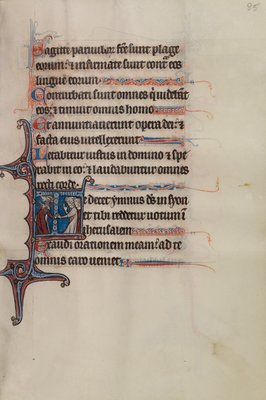 95
Sagitte paruulor fct sunt plage
eorum: & infirmate sunt cont eos
lingue eorum
Conturbati sunt omnes qui uidebant
eos: & timuit omnis homo
Et annuntiauerunt opera dei: &
facta eius intellexerunt
Letabitur iustus in domino & spe
rabit in eo: & laudabuntur omnes
recti corde
Te decet ymnus ds in syon
et tibi reddetur uotum i
iherusalem
Exaudi orationem meam: ad te
omnis caro ueniet